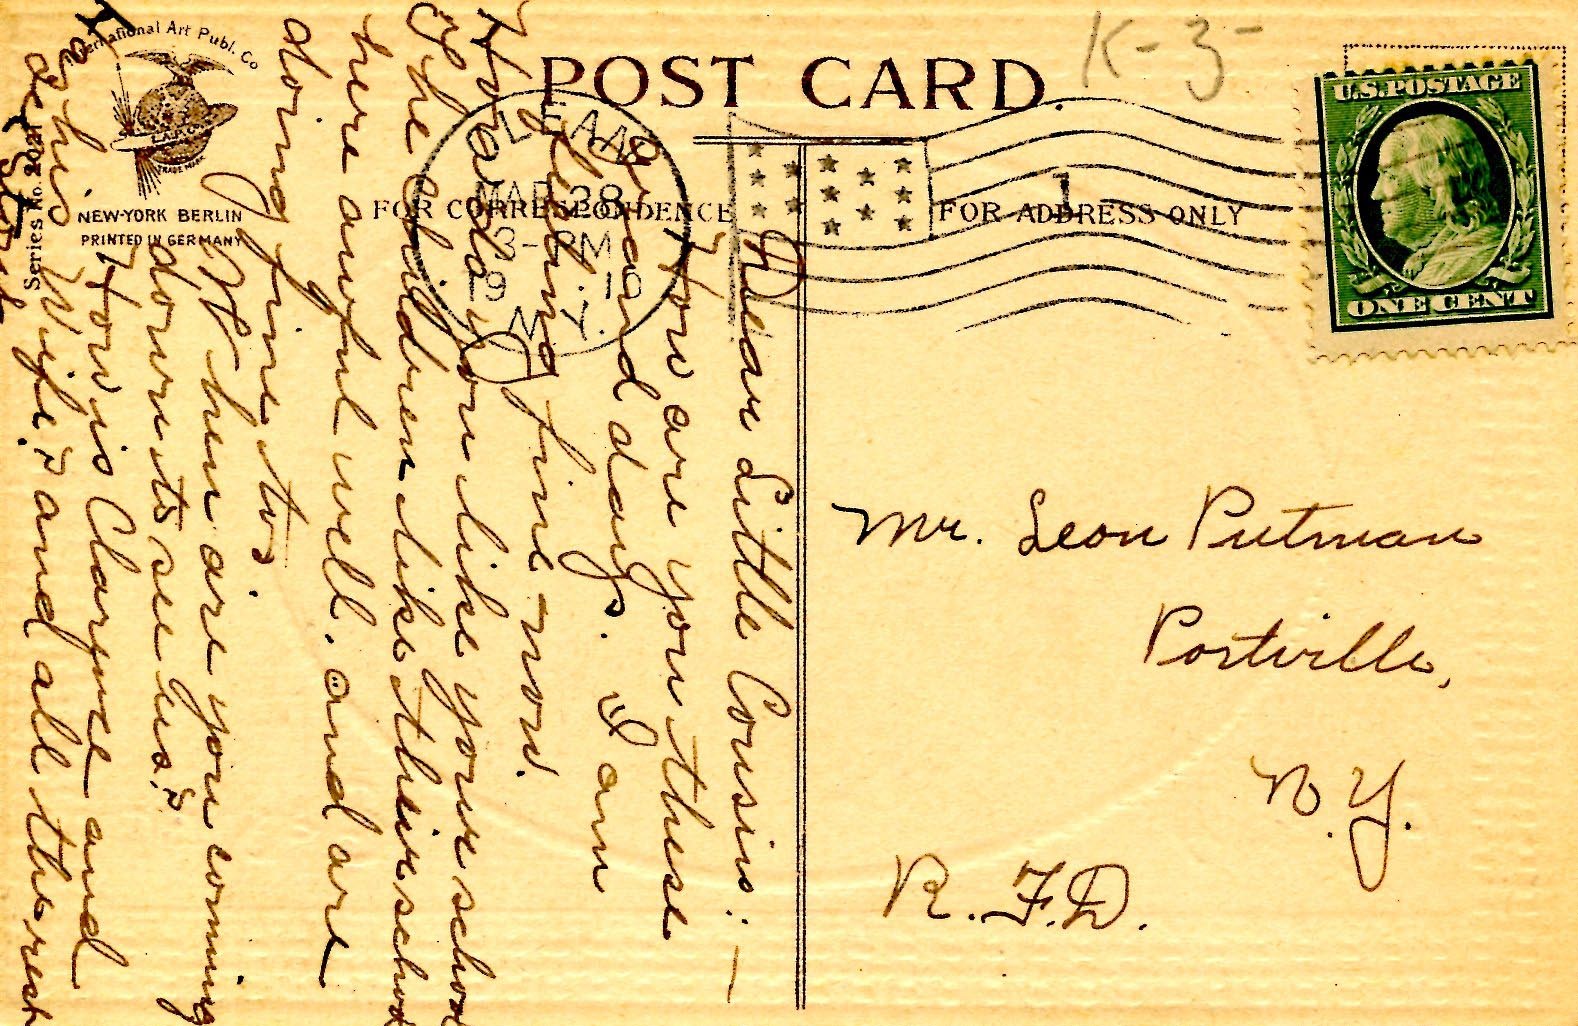 POST CARD.
K-3-
International Art Publ. Co
I.A.P.C.
TRADE MARK
NEW-YORK BERLIN
PRINTED IN GERMANY
Series No.
FOR CORRESPONDENCE
FOR ADDRESS ONLY
OLEAN
MAR 28
3-PM
1910
N.Y.
1
U.S.POSTAGE
ONE CENT
Dear Little Cousin:—
How are you these
grand days. I am
feeling fine now.
How do you like your school
The children like their school
here awful well. and are
doing fine to.
When are you coming
down to see us?
How is Clarynce and
his Wife? and all the rest
Mr. Leon Putman
Portville,
N.Y.
R.F.D.